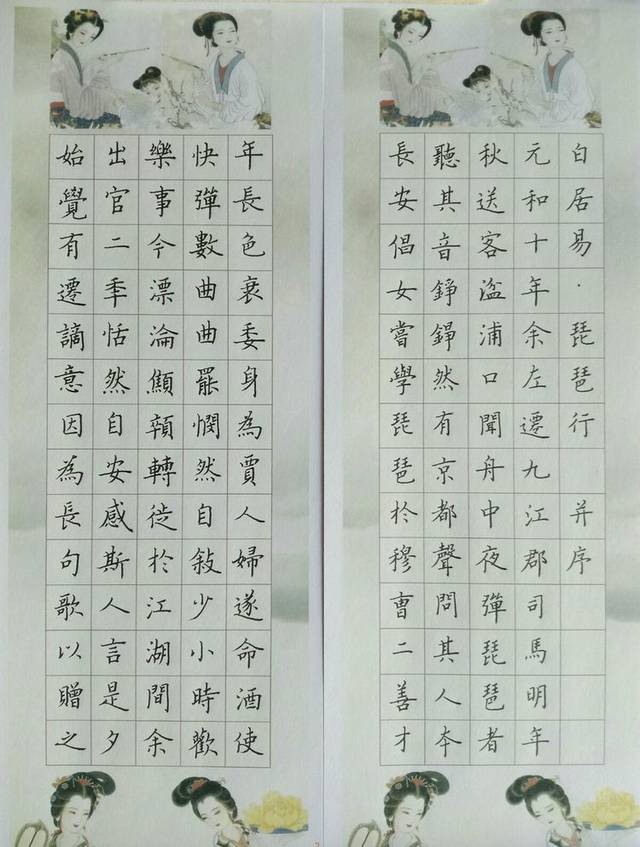 白居易·琵琶行 并序
元和十年余左遷九江郡司馬明年
秋送客湓浦口聞舟中夜彈琵琶者
聽其音錚錚然有京都聲問其人本
長安倡女嘗學琵琶於穆曹二善才
年長色衰委身為賈人婦遂命酒使
快彈數曲曲罷憫然自敍少小時歡
樂事今漂淪顦顇轉徙於江湖間余
出官二年恬然自安感斯人言是夕
始覺有遷謫意因為長句歌以贈之